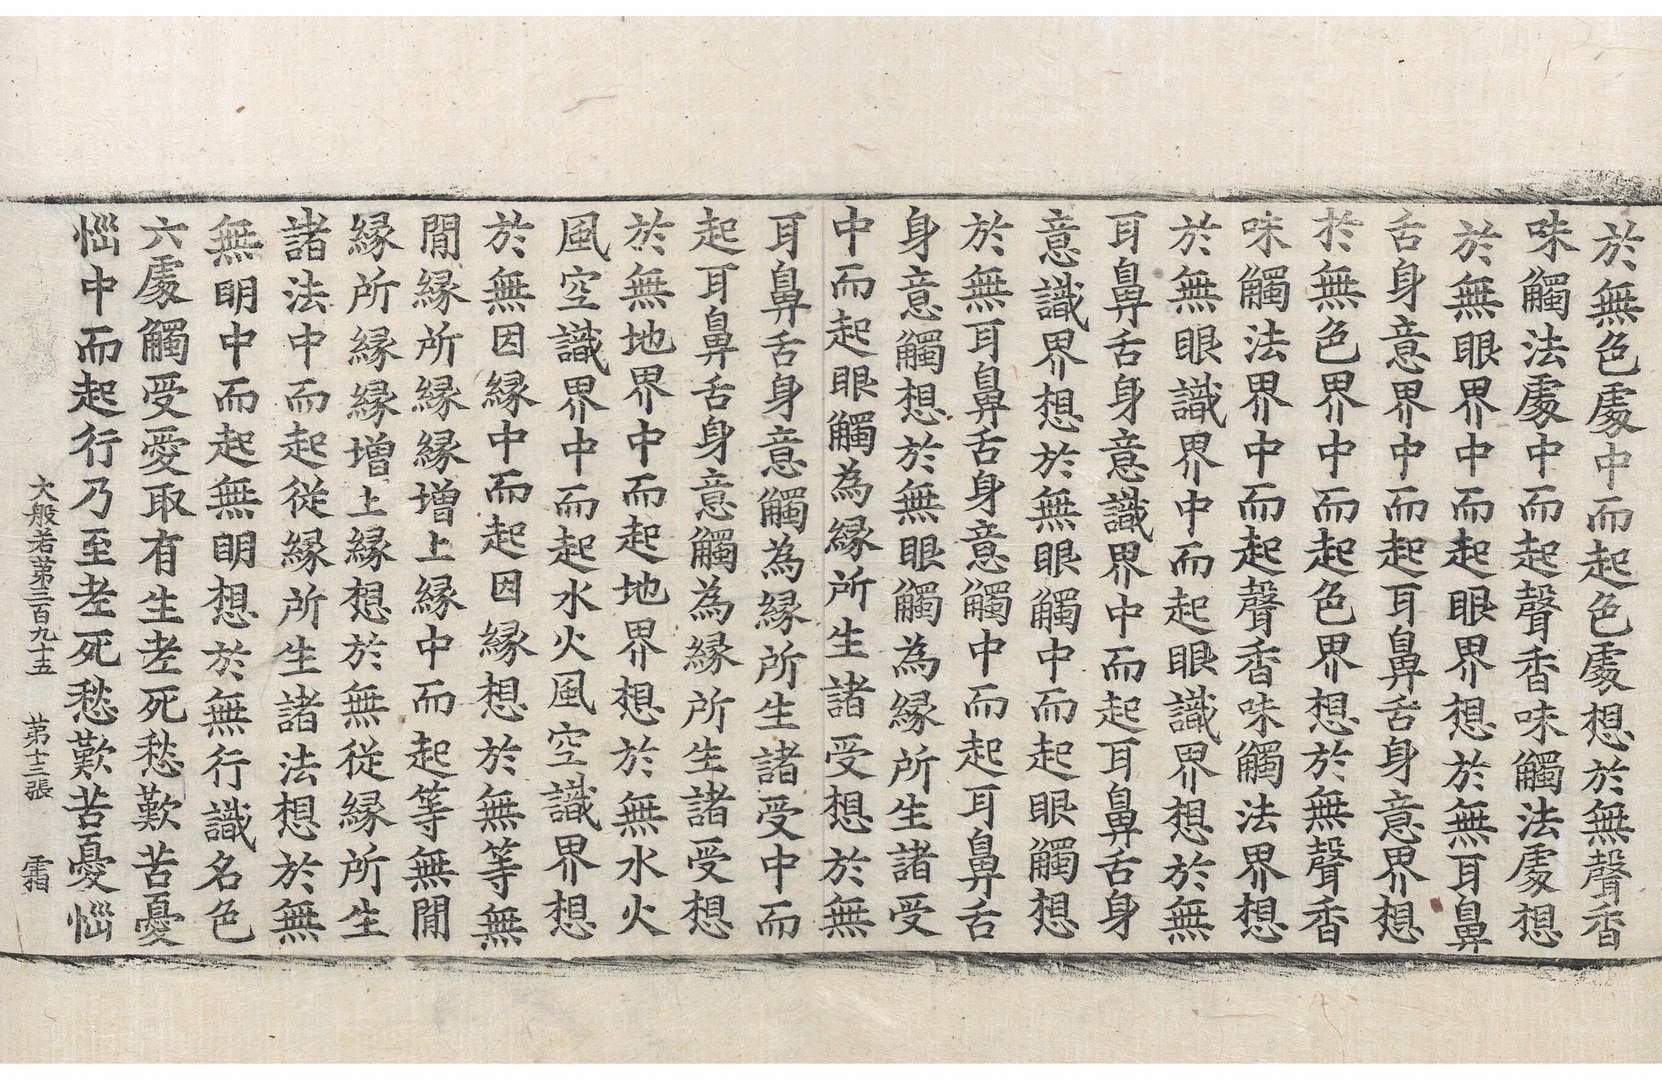 於無色處中而起色處想於無聲香
味觸法處中而起聲香味觸法處想
於無眼界中而起眼界想於無耳鼻
舌身意界中而起耳鼻舌身意界想
於無色界中而起色界想於無聲香
味觸法界中而起聲香味觸法界想
於無眼識界中而起眼識界想於無
耳鼻舌身意識界中而起耳鼻舌身
意識界想於無眼觸中而起眼觸想
於無耳鼻舌身意觸中而起耳鼻舌
身意觸想於無眼觸為緣所生諸受
中而起眼觸為緣所生諸受想於無
耳鼻舌身意觸為緣所生諸受中而
起耳鼻舌身意觸為緣所生諸受想
於無地界中而起地界想於無水火
風空識界中而起水火風空識界想
於無因緣中而起因緣想於無等無
閒緣所緣緣增上緣中而起等無閒
緣所緣緣增上緣想於無從緣所生
諸法中而起從緣所生諸法想於無
無明中而起無明想於無行識名色
六處觸受愛取有生老死愁歎苦憂
惱中而起行乃至老死愁歎苦憂惱
大般若第三百九十五 第十三張 霜